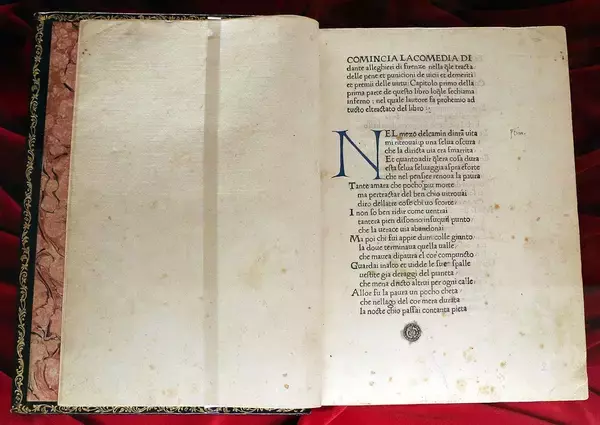 COMINCIA LACOMEDIA DI
dante alleghieri di firenze nella q̄le tracta
delle pene et punicioni de uicii et demeriti
et premii delle uirtu: Capitolo primo della
prima parte de questo libro loq̄le sechiama
inferno: nel quale lautore fa prohemio ad
tucto eltractato del libro:
NEL mezo delcamin dinr̄a uita
mi ritrouai ꝑ una selua oscura
che la diricta uia era smarrita
Et quanto adir q̄lera cosa dura
esta selua seluaggia aspra eforte
che nel pensier renoua la paura
Tante amara che pocho piu morte
ma pertractar del ben chio uitrouai
diro dellaltre cose chi uo scorte
I non so ben ridir come uentrai
tantera pien disonno insuquel punto
che la uerace uia abandonai
Ma poi chi fui appie dum colle giunto
la doue terminaua quella ualle
che mauea dipaura el cor compuncto
Guardai inalto et uidde le sue spalle
uestite gia deraggi del pianeta
che mena dricto altrui per ogni calle
Allor fu la paura un pocho cheta
che nellago del cor mera durata
la nocte chio passai contanta pieta